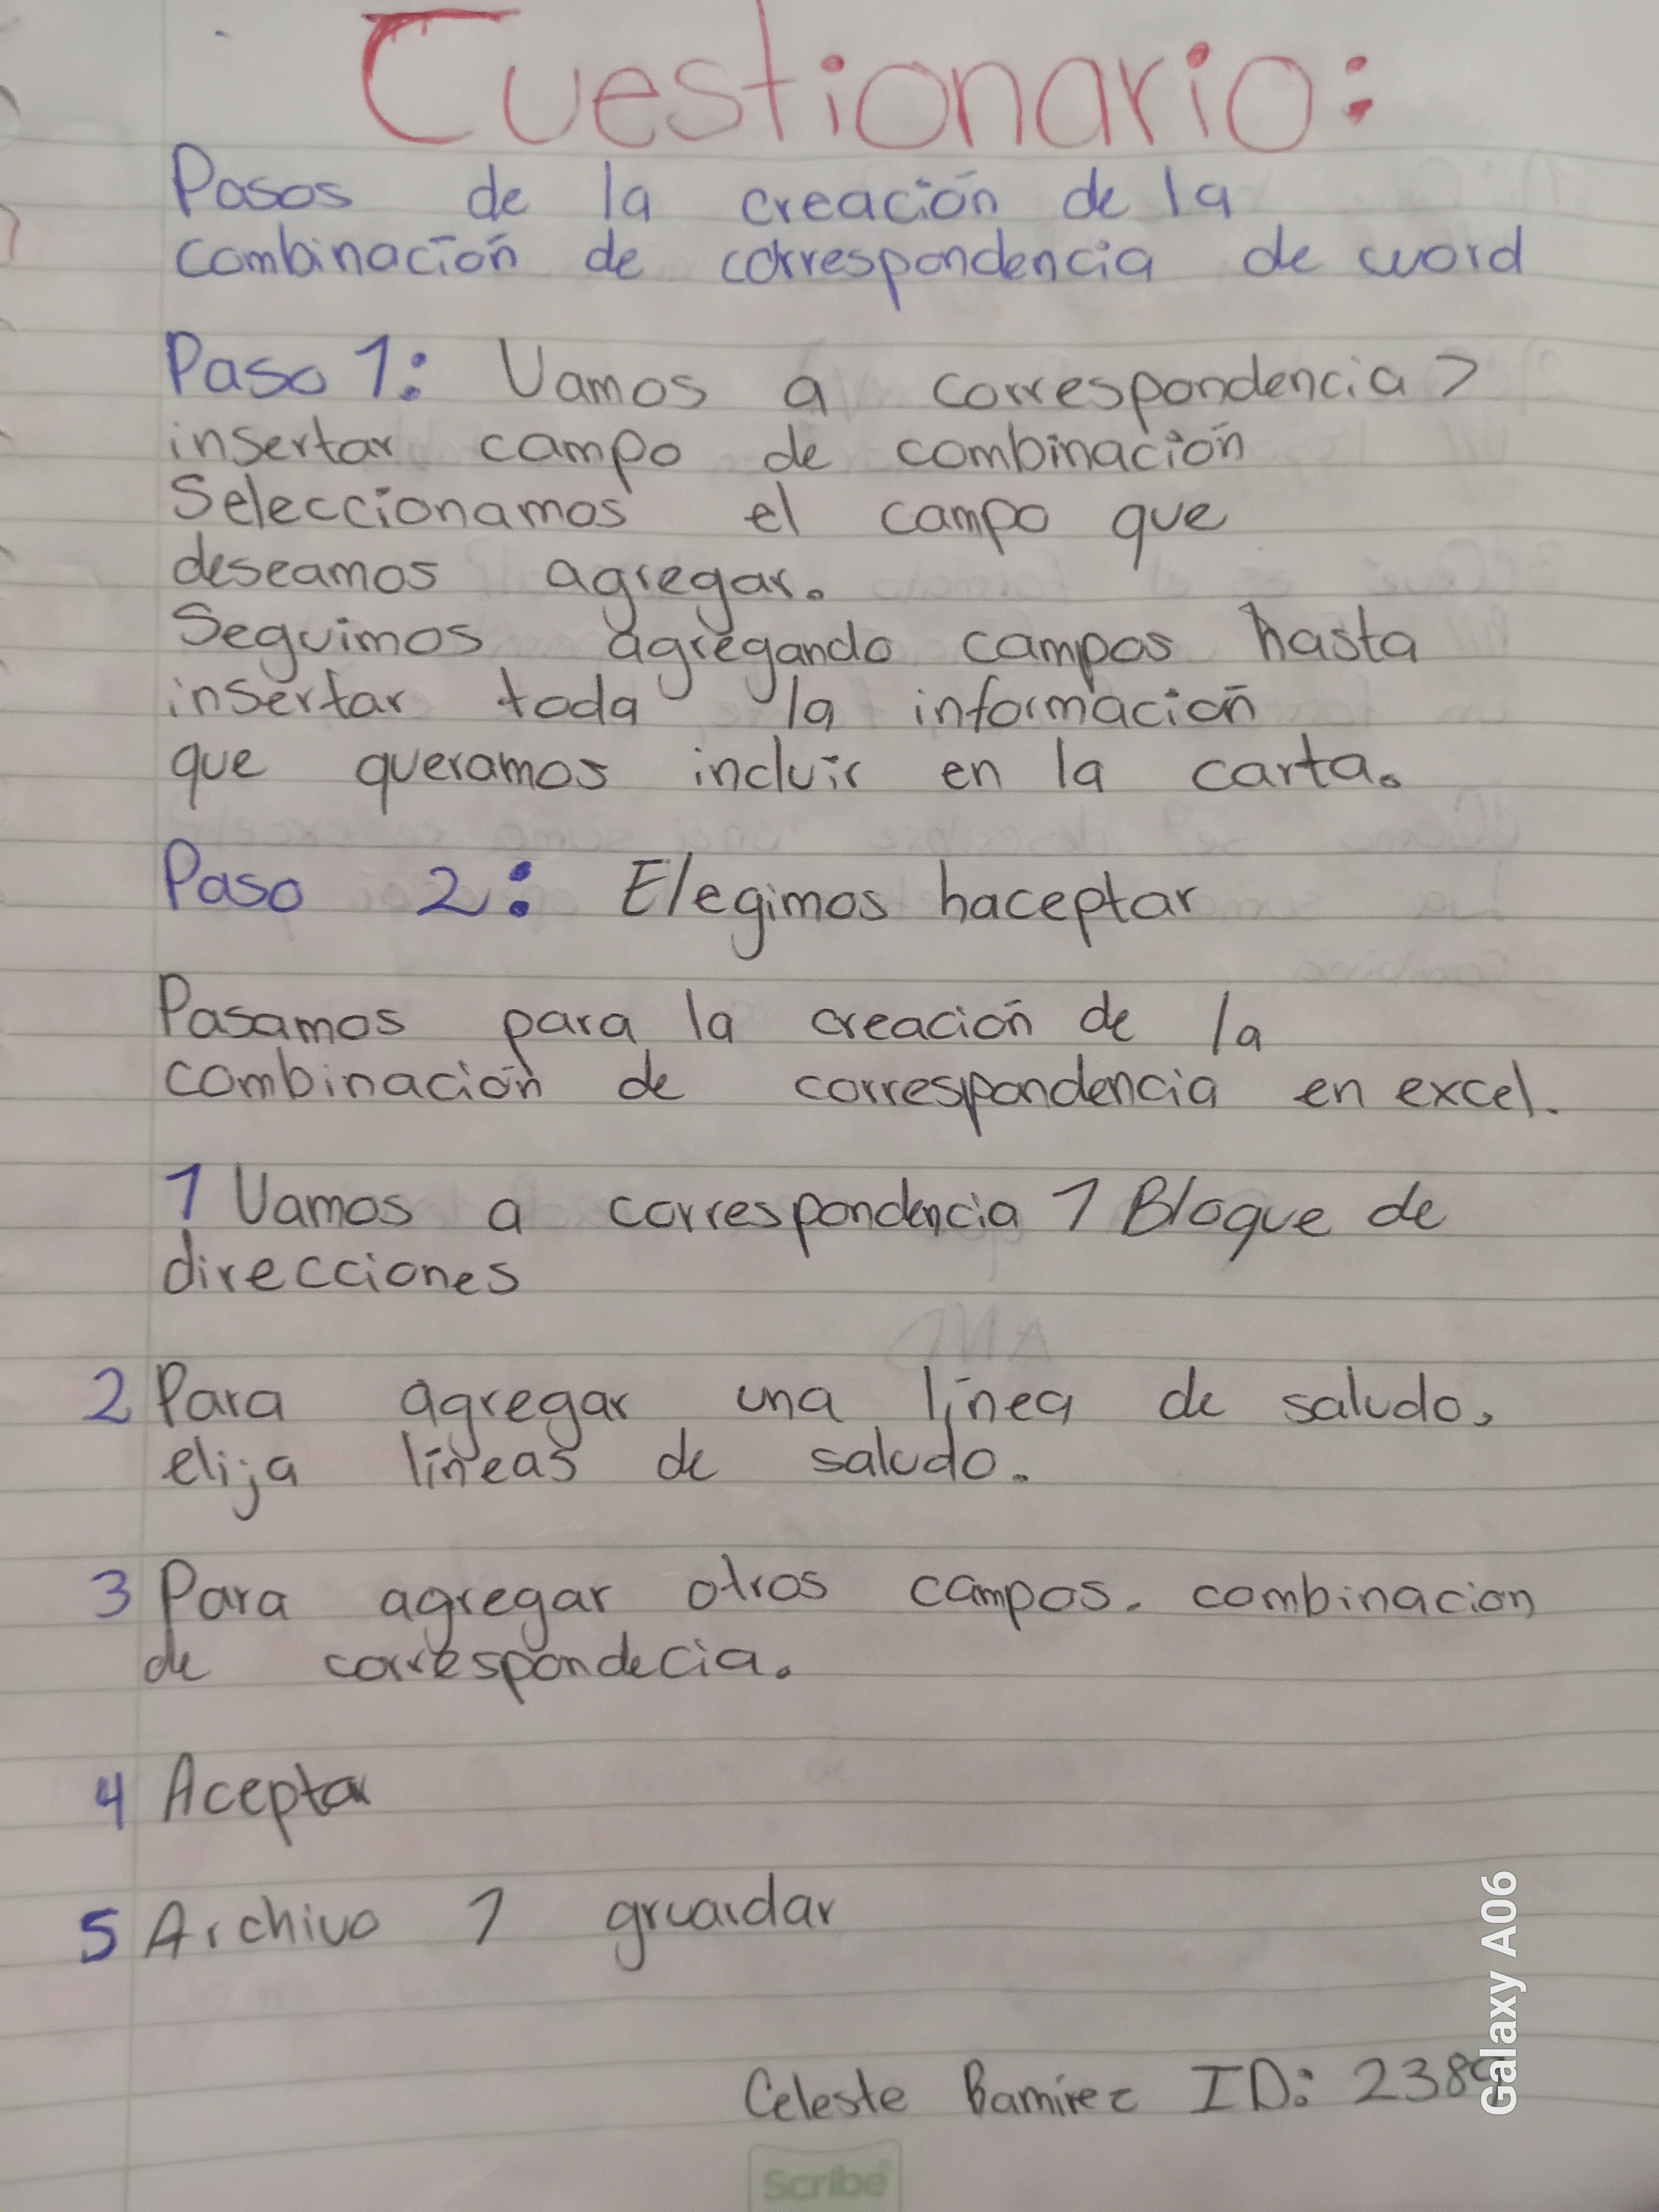 Cuestionario:
Pasos de la creación de la
combinación de correspondencia de word
Paso 1: Vamos a correspondencia >
insertar campo de combinación
Seleccionamos el campo que
deseamos agregar.
Seguimos agregando campos hasta
insertar toda la información
que queramos incluir en la carta.
Paso 2: Elegimos haceptar
Pasamos para la creación de la
combinación de correspondencia en excel.
1 Vamos a correspondencia 1 Bloque de
direcciones
2 Para agregar una línea de saludo,
elija líneas de saludo.
3 Para agregar otros campos. combinacion
de correspondecia.
4 Aceptar
5 Archivo 1 gruardar
Celeste Ramirez ID: 2389
Galaxy A06
Scribe